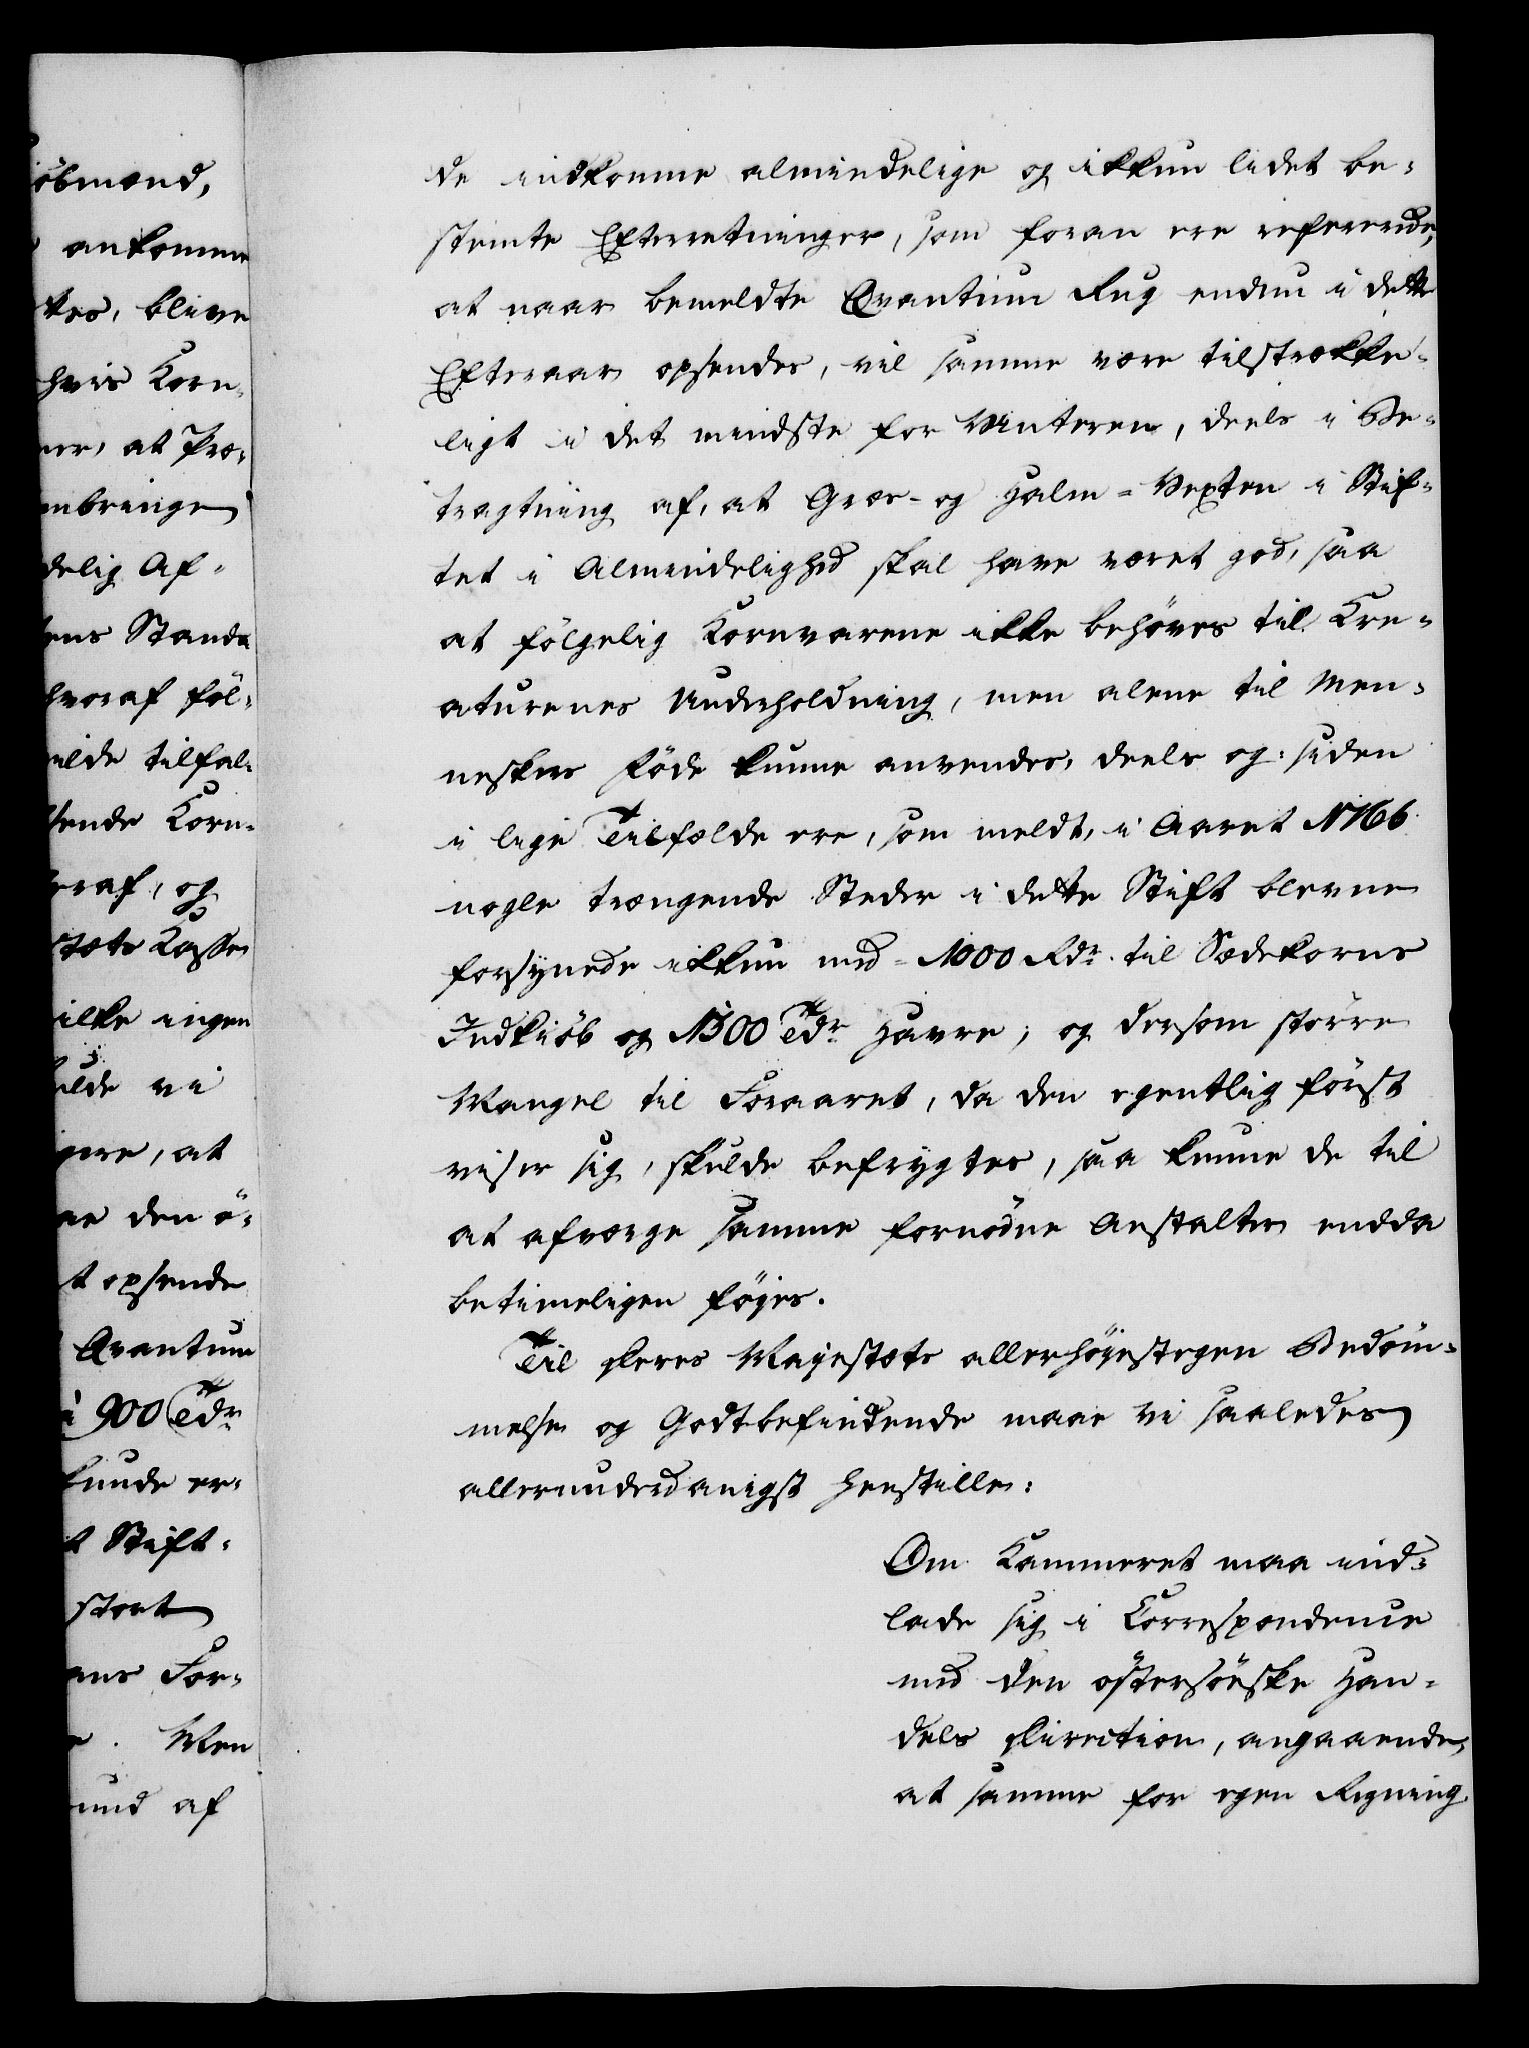 iöbmænd,
ankomme
tes, blive
hvis Korn-
ner, at Præ-
nbringe
delig Af-
ens Stands
hvoraf föl-
ilde tilfal-
sende Korn-
eraf, og
stæts Kasse
ilke ingen
ulde vi
gere, at
ae den ö-
t opsende
Qvantum
i 900 Tdr
kunde er-
t Stift-
stort
ans For-
. Men
und af
de indkomne almindelige og ikkun lidet be-
stemte Efterretninger, som foran ere refererede,
at naar bemeldte Qvantum Rug endnu i dette
Efteraar opsendes, vil samme være tilstrække-
ligt i det mindste for Vinteren, deels i Be-
tragtning af, at Græs- og Halm-Vexten i Stif-
tet i Almindelighed skal have været god, saa
at fölgelig Kornvarene ikke behöves til Kre-
aturenes Underholdning, men alene til Men-
neskers Föde kunne anvendes, deels og: siden
i lige Tilfælde ere, som meldt, i Aaret 1766
nogle trængende Steder i dette Stift blevne
forsynede ikkun med 1000 Rdr. til Sædekorns
Indkiöb og 1500 Tdr Havre; og dersom större
Mangel til Foraaret, da den egentlig först
viser sig, skulde befrygtes, saa kunne de til
at afværge samme fornödne Anstalter endda
betimeligen föyes.
Til Deres Majestæts allerhöyestegen Bedöm-
melse og Godtbefindende maae vi saaledes
allerunderdanigst henstille:
Om Kammeret maa ind-
lade sig i Correspondence
med den östersöeske Han-
dels Direction, angaaende,
at samme for egen Regning